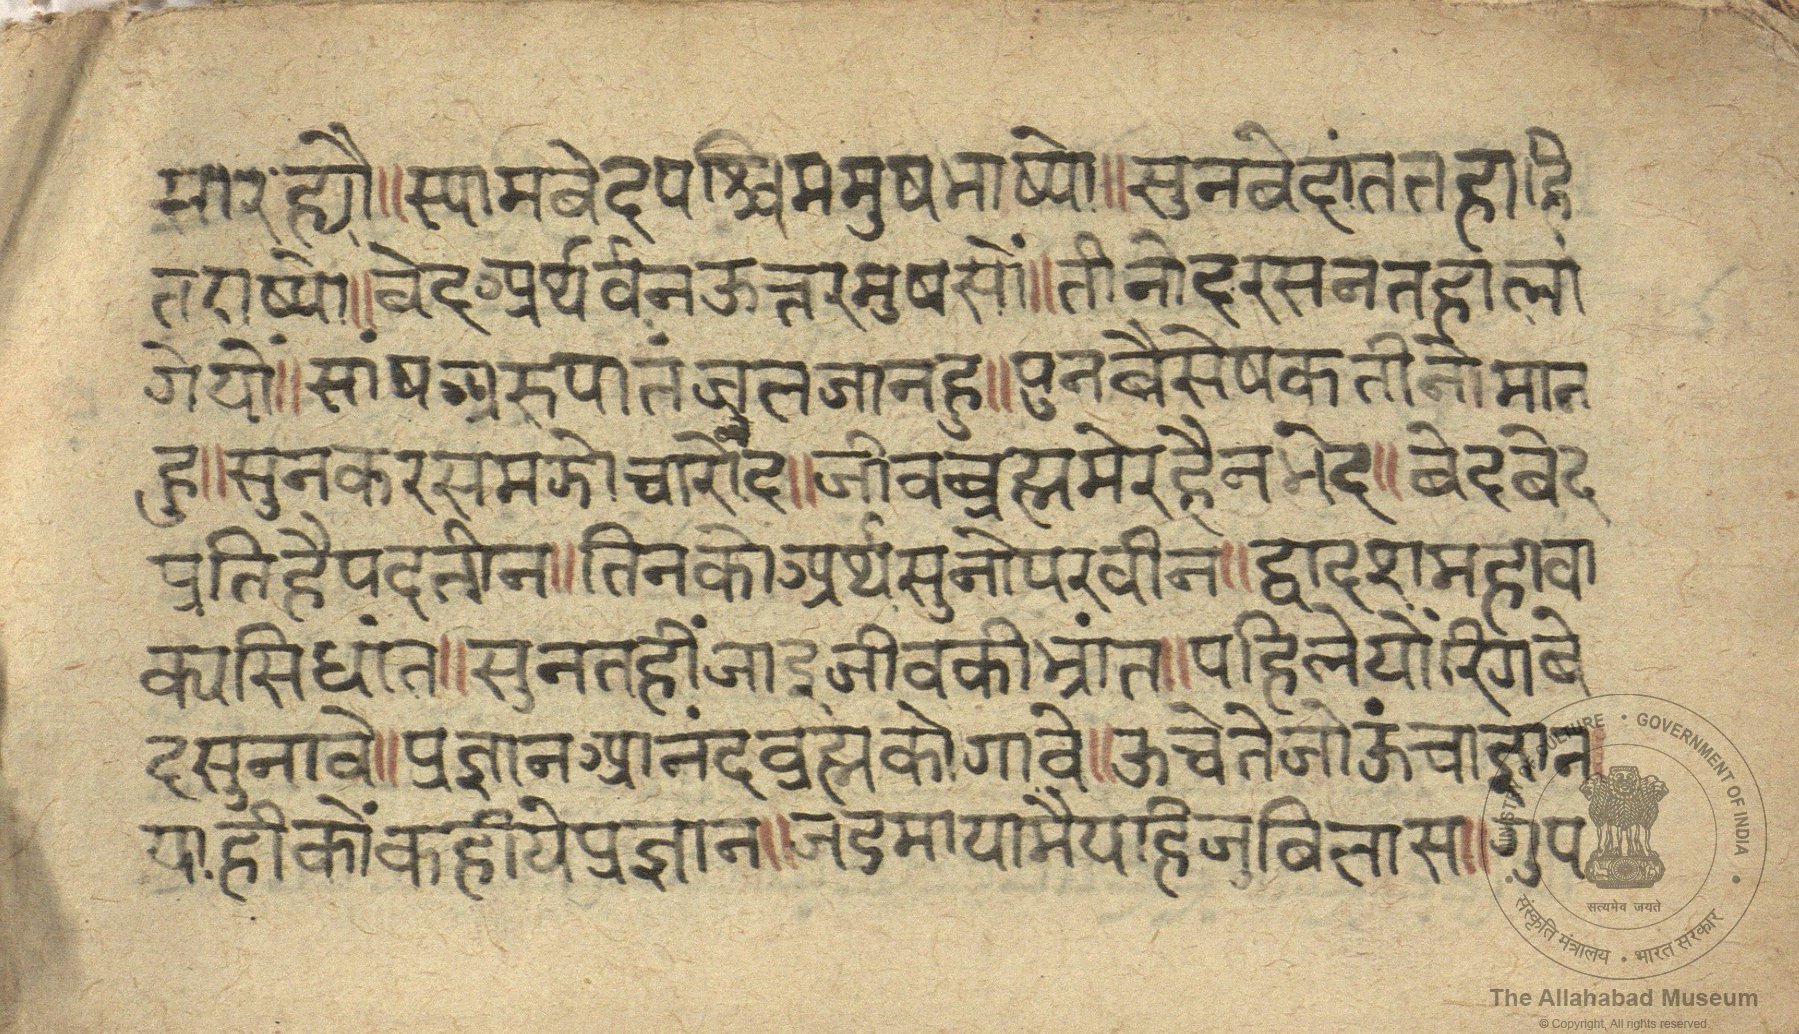 सार ह्यौ॥स्यामबेदपश्चिममुषभाष्यो॥सुनबेदांततहाहि
तराष्यो॥बेदअर्थर्वनऊत्तरमुषसों॥तीनोदरसनतहालां
गेयों॥सांषअरुपातंजुलजानहु॥पुनबैसेषकतीनोमान
हु॥सुनकरसमझोचारोंद॥जीवब्रह्ममेरहैनभेद॥बेदबेद
प्रतिहैपदतीन॥तिनकोअर्थसुनोपरवीन॥द्वादशमहावा
क्यसिधांत॥सुनतहींजाइजीवकीभ्रांत॥पहिलेयोंरिगबे
दसुनावे॥प्रज्ञानआनंदब्रह्मकोगावे॥ऊचेतेजोऊंचाज्ञान॥
याहीकोंकहीयेप्रज्ञान॥जडमायामैयाहिजुबिलास॥गुप
MINISTRY OF CULTURE • GOVERNMENT OF INDIA
सत्यमेव जयते
संस्कृति मंत्रालय • भारत सरकार
The Allahabad Museum
© Copyright, All rights reserved.